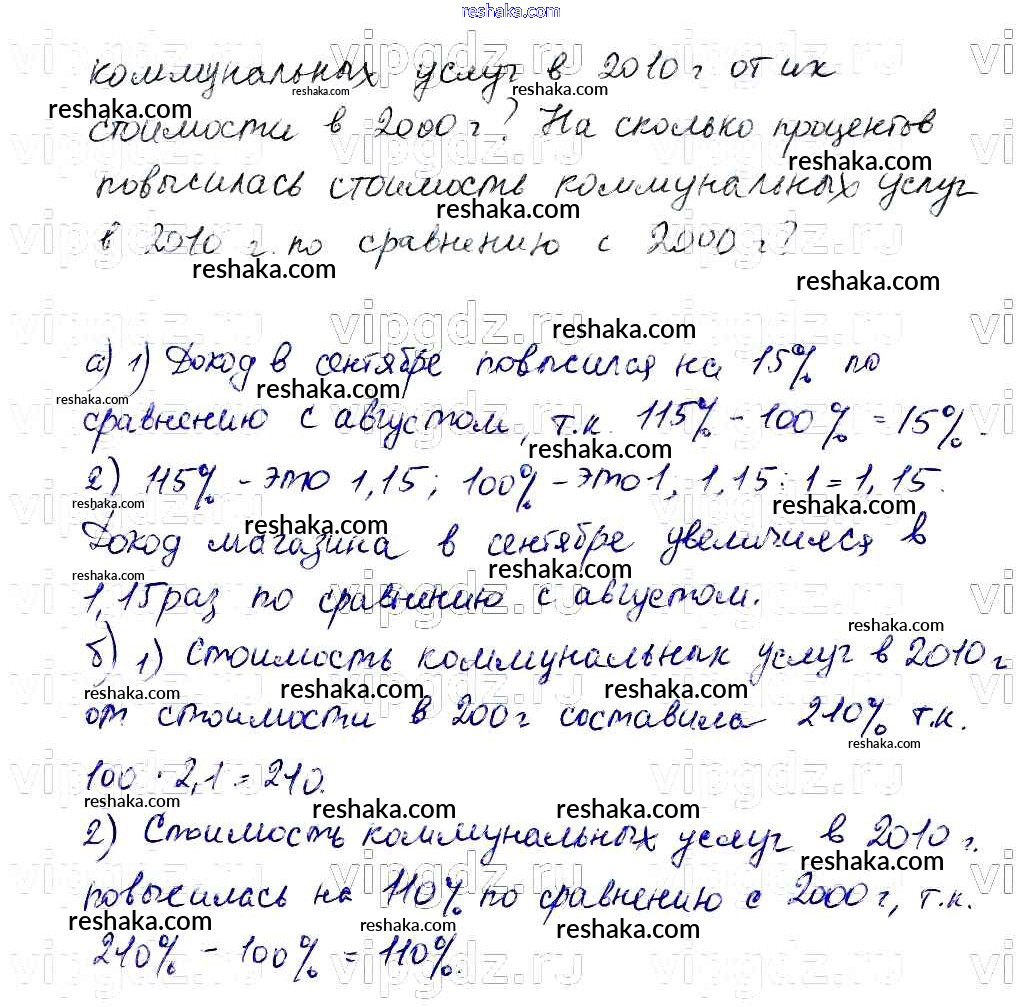 reshaka.com
коммунальных услуг в 2010 г от их
стоимости в 2000 г? На сколько процентов
повысилась стоимость коммунальных услуг
в 2010 г. по сравнению с 2000 г?
а) 1) Доход в сентябре повысился на 15% по
сравнению с августом, т.к. 115% - 100% = 15%.
2) 115% - это 1,15; 100% - это 1, 1,15 : 1 = 1,15.
Доход магазина в сентябре увеличился в
1,15 раз по сравнению с августом.
б) 1) Стоимость коммунальных услуг в 2010 г
от стоимости в 200 г составила 210% т.к.
100 · 2,1 = 210.
2) Стоимость коммунальных услуг в 2010 г.
повысилась на 110% по сравнению с 2000 г, т.к.
210% - 100% = 110%.